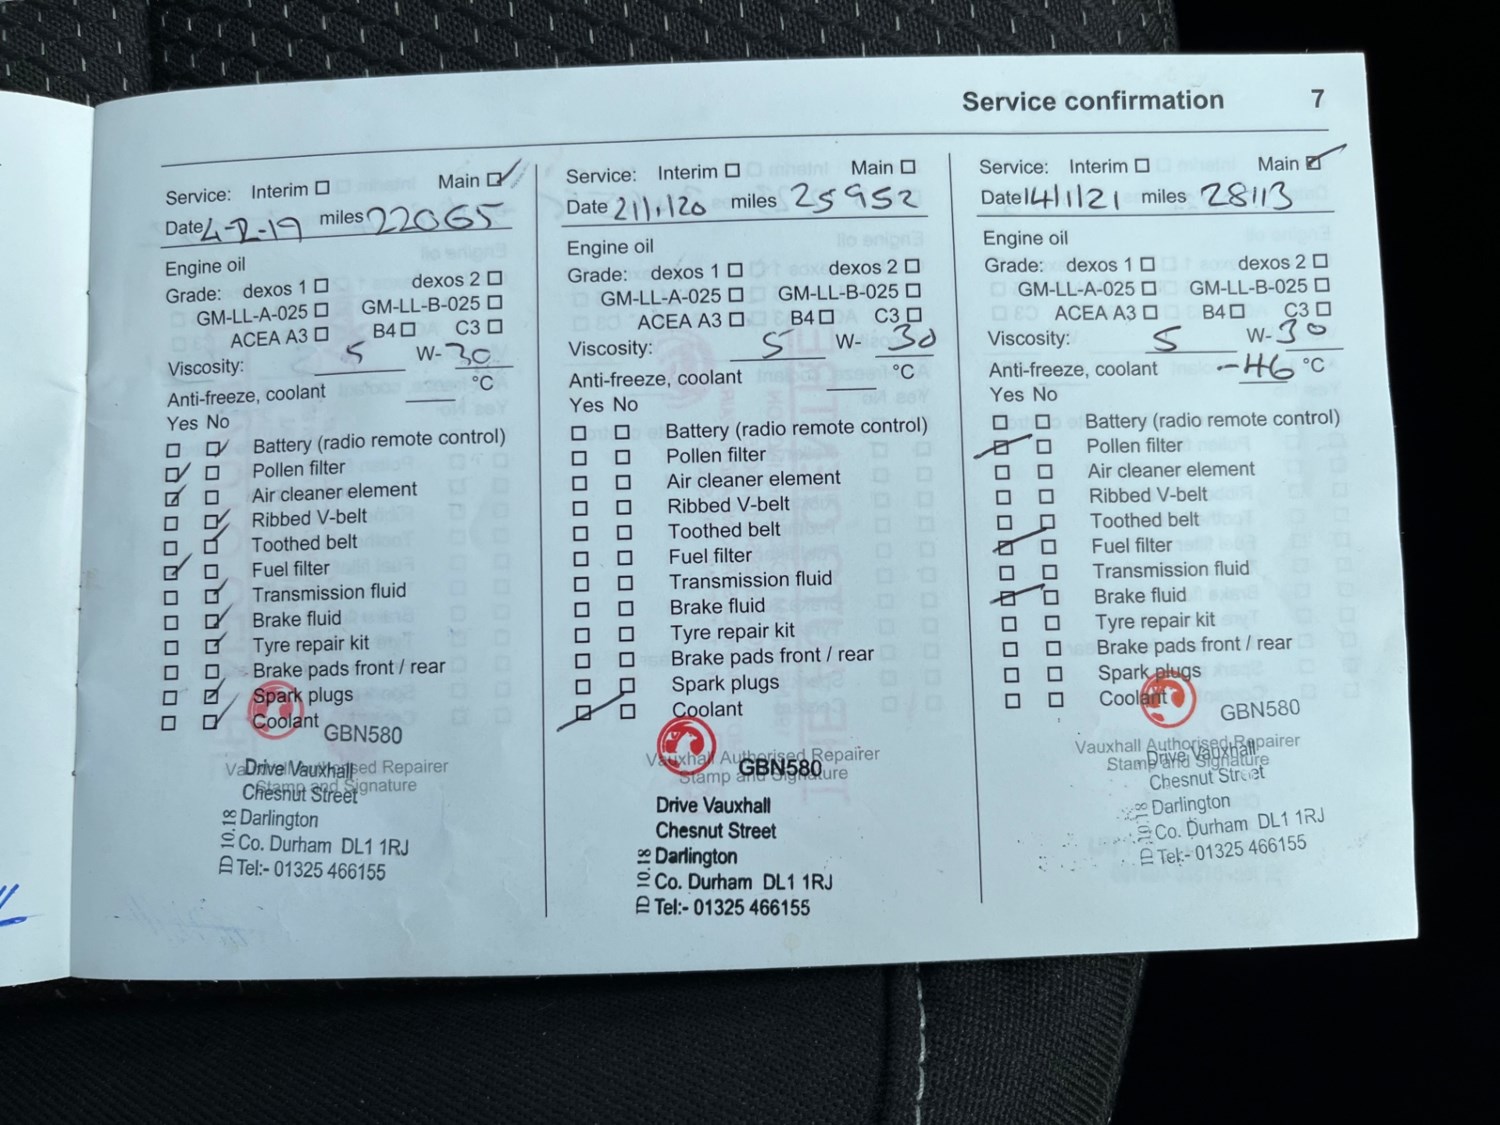 Service confirmation 7
Service: Interim Main
Date 4-2-19 miles 22065
Engine oil
Grade: dexos 1 dexos 2
GM-LL-A-025 GM-LL-B-025
ACEA A3 B4 C3
Viscosity: 5 W-30
Anti-freeze, coolant °C
Yes No
Battery (radio remote control)
Pollen filter
Air cleaner element
Ribbed V-belt
Toothed belt
Fuel filter
Transmission fluid
Brake fluid
Tyre repair kit
Brake pads front / rear
Spark plugs
Coolant
GBN580
Vauxhall Authorised Repairer
Stamp and Signature
Drive Vauxhall
Chesnut Street
Darlington
Co. Durham DL1 1RJ
Tel:- 01325 466155
ID 10.18
Service: Interim Main
Date 21/1/20 miles 25952
Engine oil
Grade: dexos 1 dexos 2
GM-LL-A-025 GM-LL-B-025
ACEA A3 B4 C3
Viscosity: 5 W-30
Anti-freeze, coolant °C
Yes No
Battery (radio remote control)
Pollen filter
Air cleaner element
Ribbed V-belt
Toothed belt
Fuel filter
Transmission fluid
Brake fluid
Tyre repair kit
Brake pads front / rear
Spark plugs
Coolant
Vauxhall Authorised Repairer
Stamp and Signature
GBN580
Drive Vauxhall
Chesnut Street
Darlington
Co. Durham DL1 1RJ
Tel:- 01325 466155
ID 10.18
Service: Interim Main
Date 14/1/21 miles 28113
Engine oil
Grade: dexos 1 dexos 2
GM-LL-A-025 GM-LL-B-025
ACEA A3 B4 C3
Viscosity: 5 W-30
Anti-freeze, coolant -46 °C
Yes No
Battery (radio remote control)
Pollen filter
Air cleaner element
Ribbed V-belt
Toothed belt
Fuel filter
Transmission fluid
Brake fluid
Tyre repair kit
Brake pads front / rear
Spark plugs
Coolant
GBN580
Vauxhall Authorised Repairer
Stamp and Signature
Drive Vauxhall
Chesnut Street
Darlington
Co. Durham DL1 1RJ
Tel:- 01325 466155